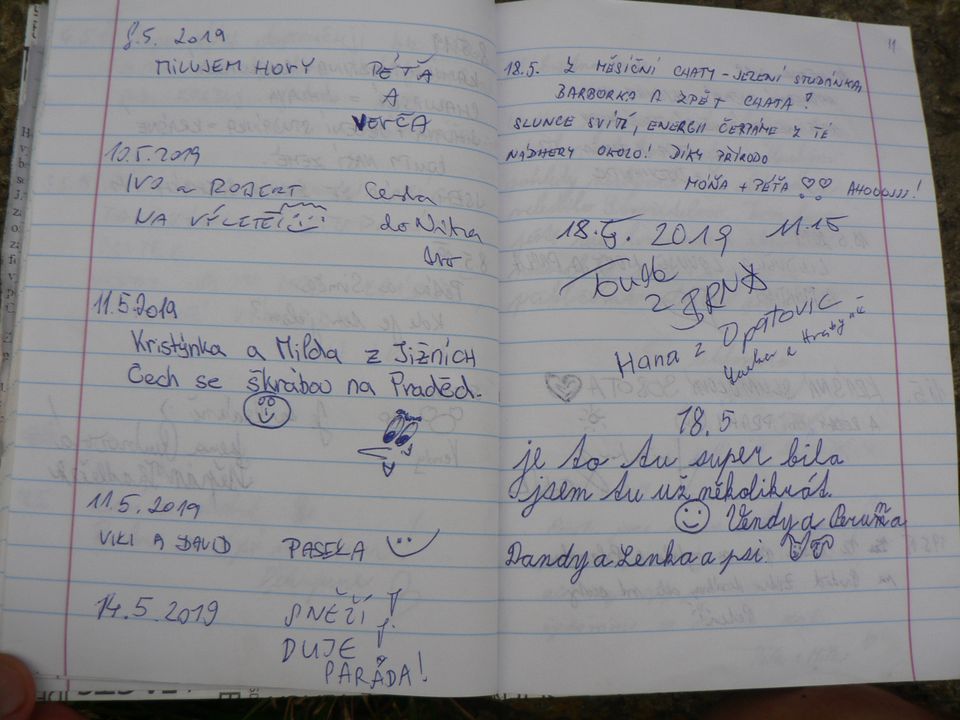 8.5. 2019
MILUJEM HORY PÉŤA
A
VERČA
10.5.2019
IVO a ROBERT Cesta
NA VÝLETĚ do Nitra
11.5.2019
Kristýnka a Milda z Jižních
Čech se škrábou na Praděd.
11.5.2019
VIKI A DAVID PASEKA
14.5.2019 SNĚŽÍ!
DUJE!
PARÁDA!
11
18.5. Z MĚSÍČNÍ CHATY - JELENÍ STUDÁNKA,
BARBORKA A ZPĚT CHATA!
SLUNCE SVÍTÍ, ENERGII ČERPÁME Z TÉ
NÁDHERY OKOLO! DÍKY PŘÍRODO
MÓŇA + PÉŤA AHOOOJJJ!
18.5. 2019 11.15
z BRNA
Hana z Opatovic
18.5
je to tu super bila
jsem tu už několikrát.
Vendy a
Dandy a Lenka a psi.